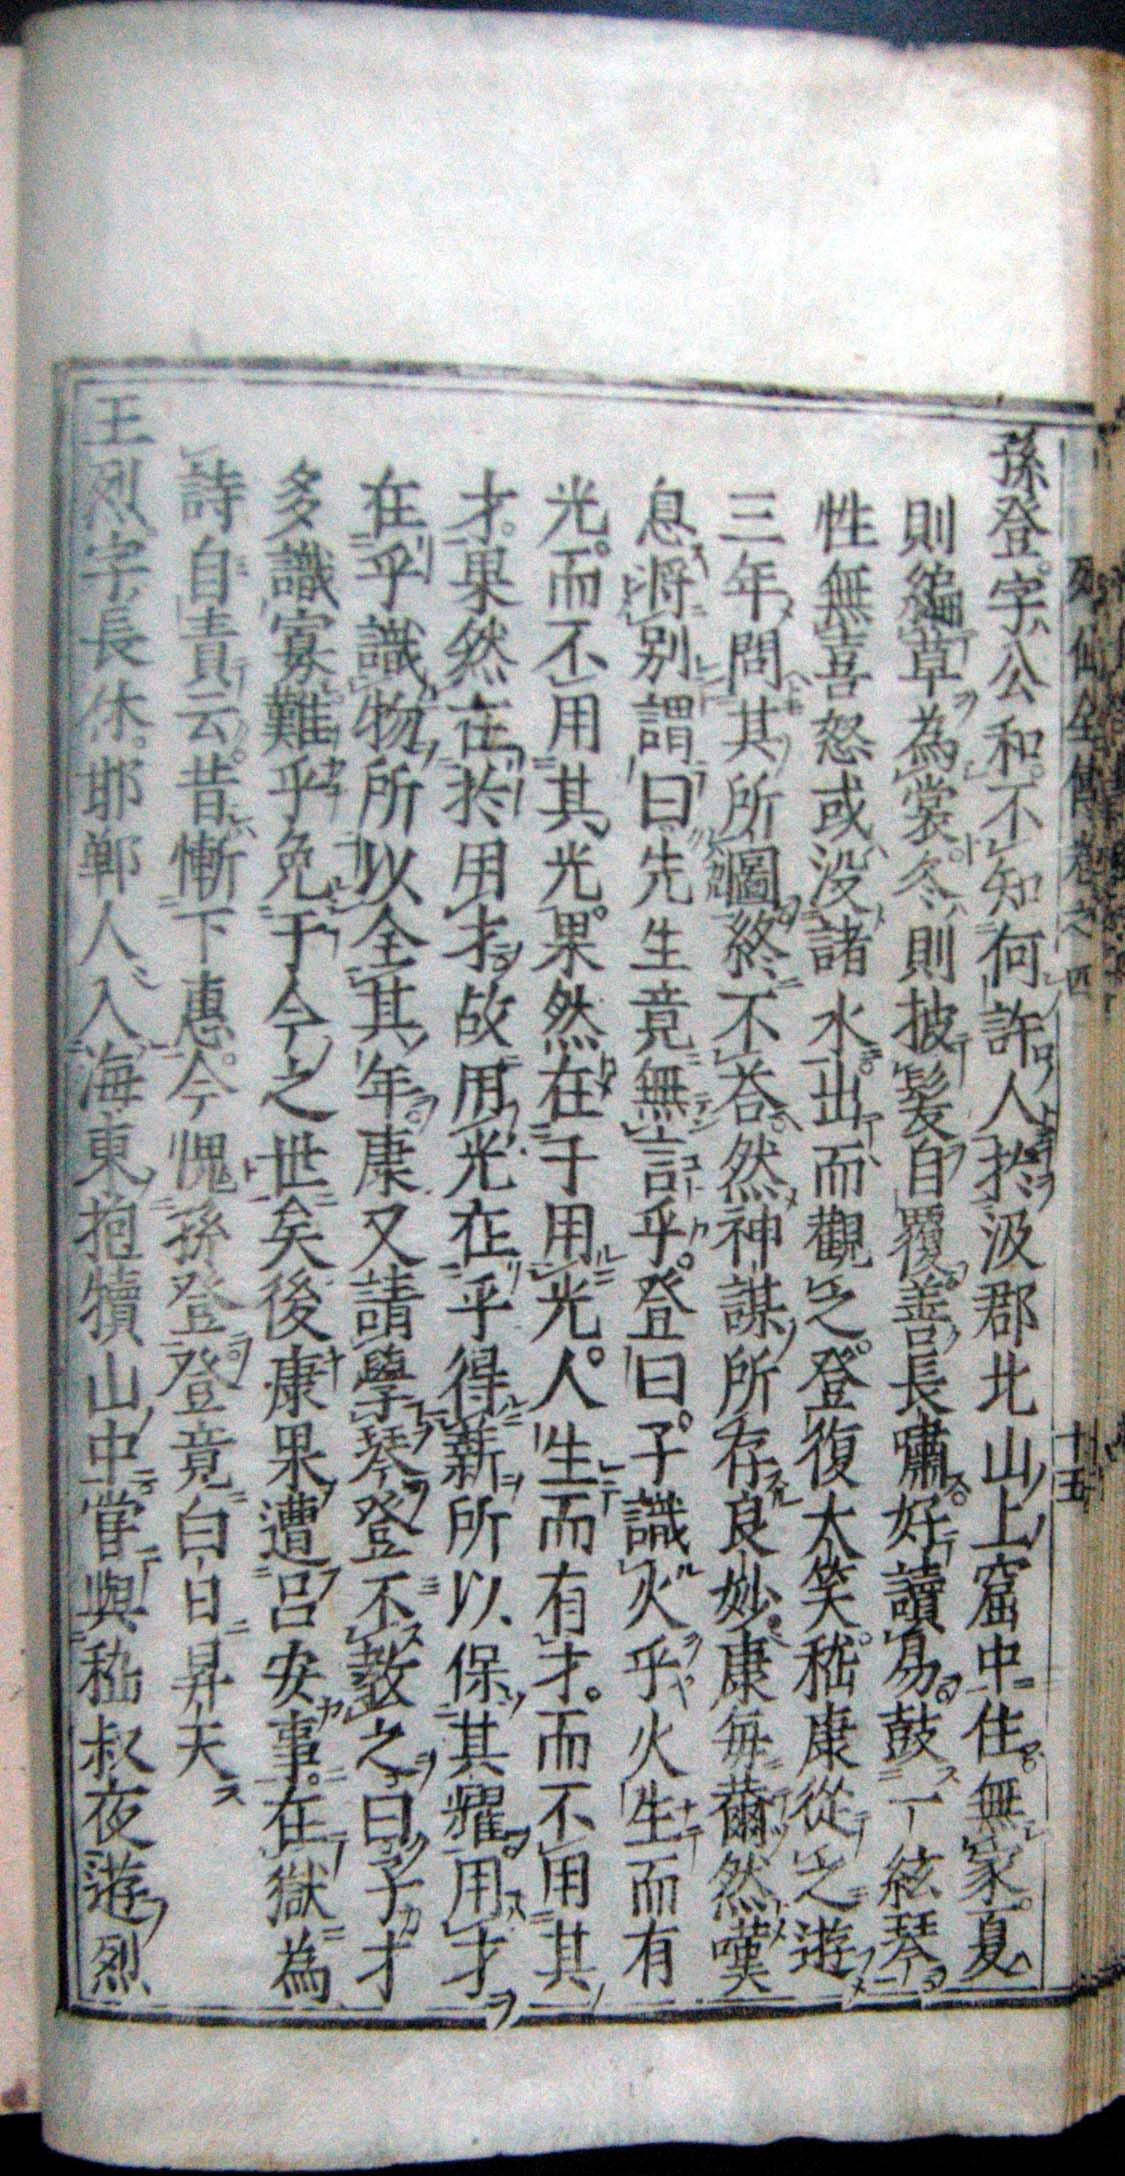 孫登字公和不知何許人於汲郡北山上窟中住無家夏
則編草為裳冬則披髮自覆善長嘯好讀易鼓一絃琴
性無喜怒或沒諸水出而觀之登復大笑嵇康從之遊
三年問其所圖終不荅然神謀所存良妙康每薾然嘆
息將別謂曰先生竟無言乎登曰子識火乎火生而有
光而不用其光果然在于用光人生而有才而不用其
才果然在於用才故用光在乎得薪所以保其耀用才
在乎識物所以全其年康又請學琴登不教之曰子才
多識寡難乎免于今之世矣後康果遭呂安事在獄為
詩自責云昔慚下惠今愧孫登登竟白日昇天
王烈字長休邯鄲人入海東抱犢山中嘗與嵇叔夜遊烈
列仙全傳卷之四
十五